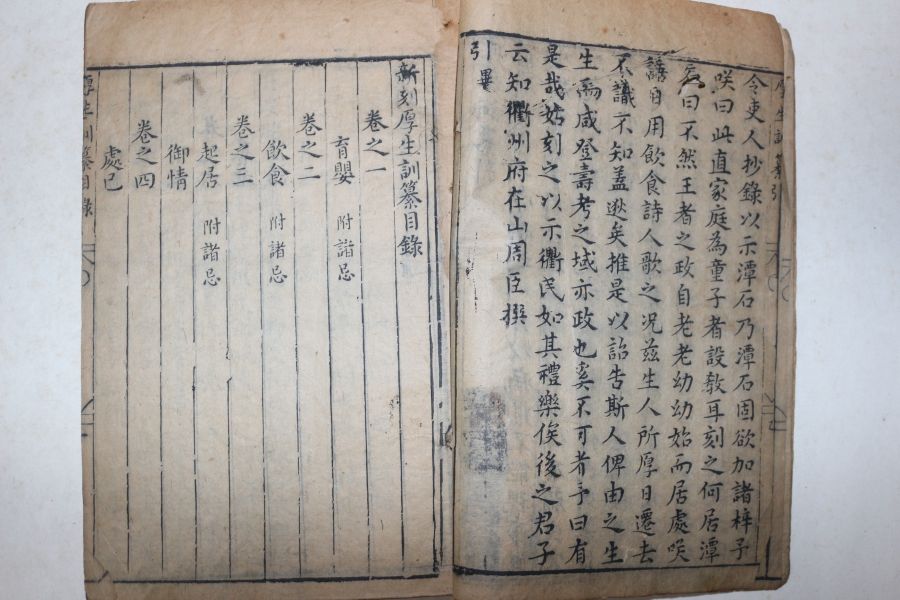 厚生訓纂引
令吏人抄錄以示潭石乃潭石固欲加諸梓予
咲曰此直家庭為童子者設教耳刻之何居潭
石曰不然王者之政自老老幼幼始而居處咲
語日用飲食詩人歌之况玆生人所厚日遷去
不識不知盖逖矣推是以詔告斯人俾由之生
生而咸登壽考之域亦政也奚不可者予曰有
是哉姑刻之以示衢民如其禮樂俟後之君子
云知衢州府在山周臣撰
引畢
新刻厚生訓纂目錄
卷之一
育嬰 附諸忌
卷之二
飲食 附諸忌
卷之三
起居 附諸忌
御情
卷之四
處已
厚生訓纂目錄